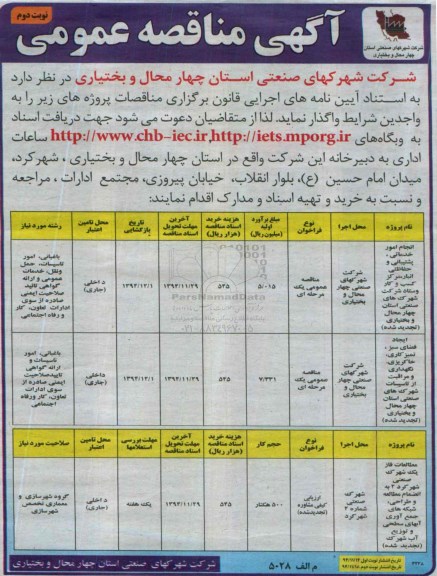 نوبت دوم
آگهی مناقصه عمومی
شرکت شهرکهای صنعتی استان
چهار محال و بختیاری
شرکت شهرکهای صنعتی استان چهار محال و بختیاری در نظر دارد
به استناد آیین نامه های اجرایی قانون برگزاری مناقصات پروژه های زیر را به
واجدین شرایط واگذار نماید. لذا از متقاضیان دعوت می شود جهت دریافت اسناد
به وبگاههای http://www.chb-iec.ir,http://iets.mporg.ir ساعات
اداری به دبیرخانه این شرکت واقع در استان چهار محال و بختیاری ، شهرکرد،
میدان امام حسین (ع)، بلوار انقلاب، خیابان پیروزی، مجتمع ادارات ، مراجعه
و نسبت به خرید و تهیه اسناد و مدارک اقدام نمایند:
نام پروژه محل اجرا نوع فراخوان مبلغ برآورد اولیه (میلیون ریال) هزینه خرید اسناد مناقصه (هزار ریال) آخرین مهلت تحویل اسناد مناقصه تاریخ بازگشایی محل تامین اعتبار رشته مورد نیاز
انجام امور خدماتی ، پشتیبانی و حفاظتی
شهرک های صنعتی استان چهار محال و بختیاری (تجدید شده)
شرکت شهرکهای صنعتی چهار محال و بختیاری
مناقصه عمومی یک مرحله ای
۵/۰۱۵
۵۴۵
۱۳۹۴/۱۱/۲۹
۱۳۹۴/۱۲/۱
داخلی (جاری)
باغبانی، امور تاسیسات، حمل ونقل، خدمات عمومی و ارائه گواهی تائید صلاحیت ایمنی صادره از سوی ادارات تعاون، کار و رفاه اجتماعی
ایجاد فضای سبز ، تمیز کاری، نگهداری و مراقبت از تاسیسات شهرک های صنعتی استان چهار محال و بختیاری (تجدید شده)
شرکت شهرکهای صنعتی چهار محال و بختیاری
مناقصه عمومی یک مرحله ای
۷/۳۳۱
۵۴۵
۱۳۹۴/۱۱/۲۹
۱۳۹۴/۱۲/۱
داخلی (جاری)
باغبانی، امور تاسیسات و ارائه گواهی تاییدصلاحیت ایمنی صادره از سوی ادارات تعاون، کار ورفاه اجتماعی
نام پروژه محل اجرا نوع فراخوان حجم کار هزینه خرید اسناد مناقصه (هزار ریال) آخرین مهلت تحویل اسناد مناقصه مهلت بررسی استعلامها محل تامین اعتبار صلاحیت مورد نیاز
مطالعات فاز یک شهرک شهرکرد ۲ به انضمام مطالعه و طراحی، شبکه های جمع آوری آبهای سطحی و توزیع آب شهرک (تجدید شده)
شهرک شماره ۲ شهرکرد
ارزیابی کیفی مشاوره (تجدیدشده)
۵۰۰ هکتار
۵۴۵
۱۳۹۴/۱۱/۲۹
یک هفته
داخلی (جاری)
گروه شهرسازی و معماری تخصص شهرسازی
م الف ۵۰۲۸
شرکت شهرکهای صنعتی استان چهار محال و بختیاری